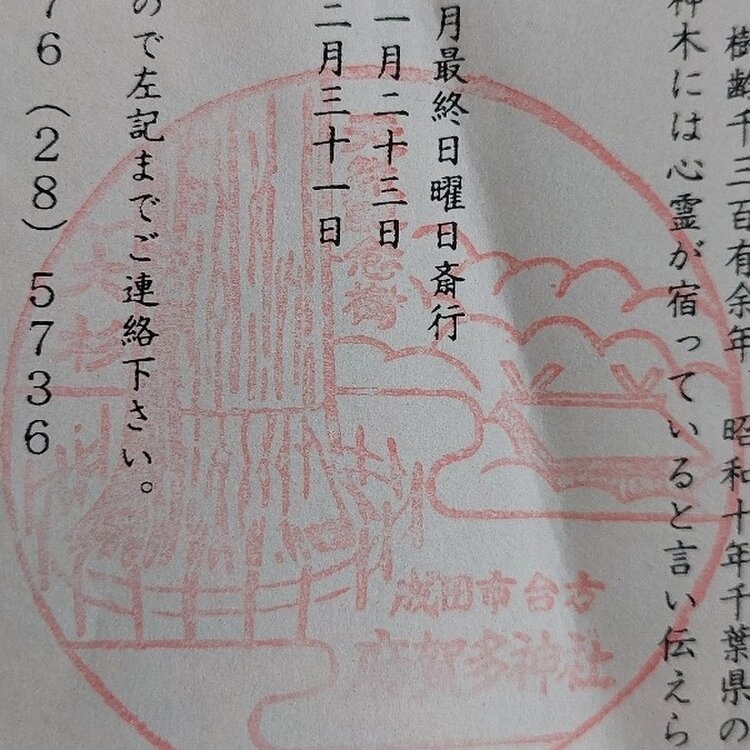 樹齢千三百有余年、昭和十年千葉県の
神木には心霊が宿っていると言い伝えら
月最終日曜日斎行
一月二十三日
二月三十一日
ので左記までご連絡下さい。
76（28）5736
大杉
成田市台方
麻賀多神社